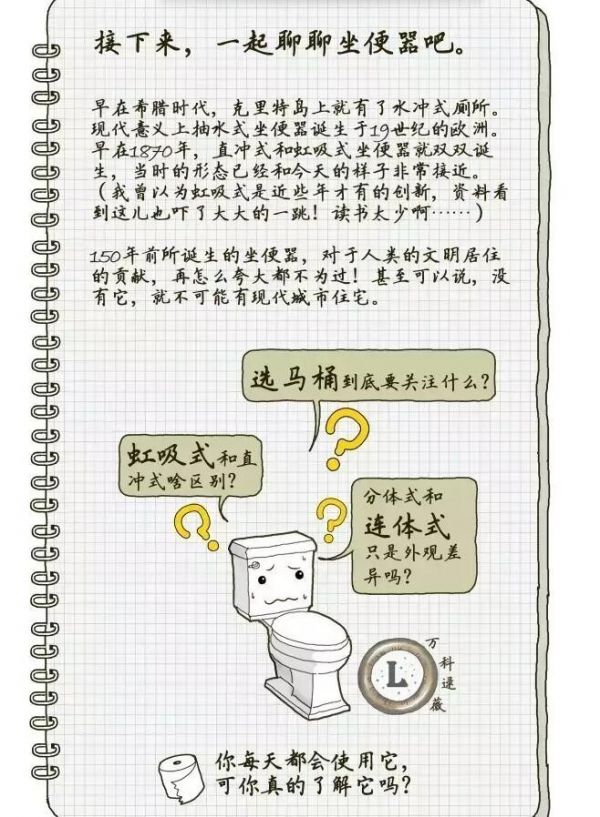 接下来，一起聊聊坐便器吧。
早在希腊时代，克里特岛上就有了水冲式厕所。
现代意义上抽水式坐便器诞生于19世纪的欧洲。
早在1870年，直冲式和虹吸式坐便器就双双诞
生，当时的形态已经和今天的样子非常接近。
（我曾以为虹吸式是近些年才有的创新，资料看
到这儿也吓了大大的一跳！读书太少啊……）
150年前所诞生的坐便器，对于人类的文明居住
的贡献，再怎么夸大都不为过！甚至可以说，没
有它，就不可能有现代城市住宅。
选马桶到底要关注什么？
虹吸式和直
冲式啥区别？
分体式和
连体式
只是外观差
异吗？
L
万科逯薇
你每天都会使用它，
可你真的了解它吗？